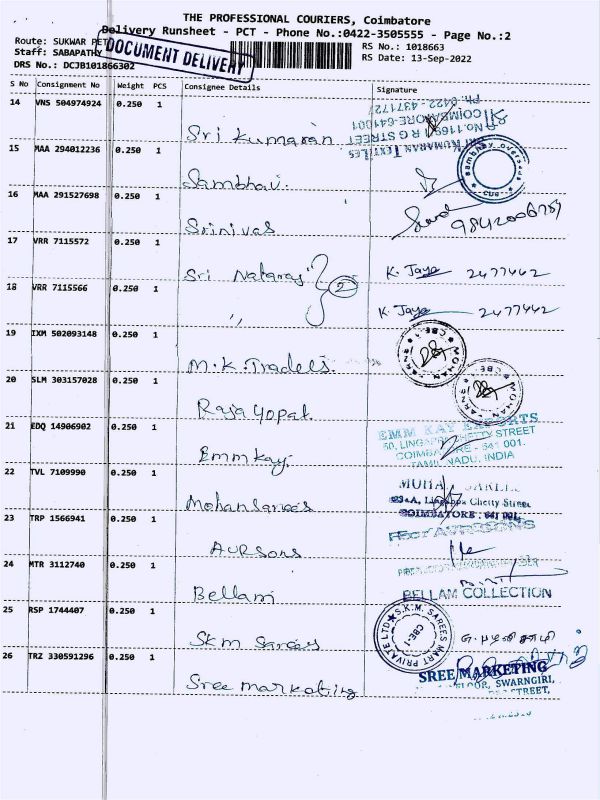 THE PROFESSIONAL COURIERS, Coimbatore
Delivery Runsheet - PCT - Phone No.:0422-3505555 - Page No.:2
Route: SUKWAR PET
DOCUMENT DELIVERY
RS No.: 1018663
Staff: SABAPATHY
RS Date: 13-Sep-2022
DRS No.: DCJB101866302
S No Consignment No Weight PCS Consignee Details Signature
14 VNS 504974924 0.250 1 Sri Kumaran
SRI KUMARAN TEXTILES
No.1169, R G STREET
COIMBATORE-641001
Ph: 0422 - 437172
15 MAA 294012236 0.250 1 Sambhavi.
16 MAA 291527698 0.250 1 Srinivas 9842006789
17 VRR 7115572 0.250 1 Sri Nataraj 2 K. Jaya 2477442
18 VRR 7115566 0.250 1 " K. Jaya 2477442
19 IXM 502093148 0.250 1 M.K. Traders.
20 SLM 303157028 0.250 1 Rajagopal.
21 EDQ 14906902 0.250 1 Emmkay.
EMM KAY EXPORTS
STREET
COIMBATORE - 641 001.
TAMIL NADU, INDIA
22 TVL 7109990 0.250 1 Mohan Sarees
Chetty Street
COIMBATORE
23 TRP 1566941 0.250 1 AURSons
For AURSONS
24 MTR 3112740 0.250 1 Bellam
BELLAM COLLECTION
25 RSP 1744407 0.250 1 SKM Sarees
S.K.M. SAREES MART PRIVATE LTD
CBE-1
பழனிசாமி
26 TRZ 330591296 0.250 1 Sree marketing
SREE MARKETING
FLOOR, SWARNGIRI,
STREET,